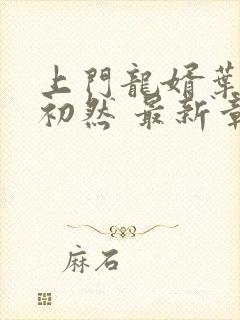 上門龍婿葉
初然 最新章
麻石